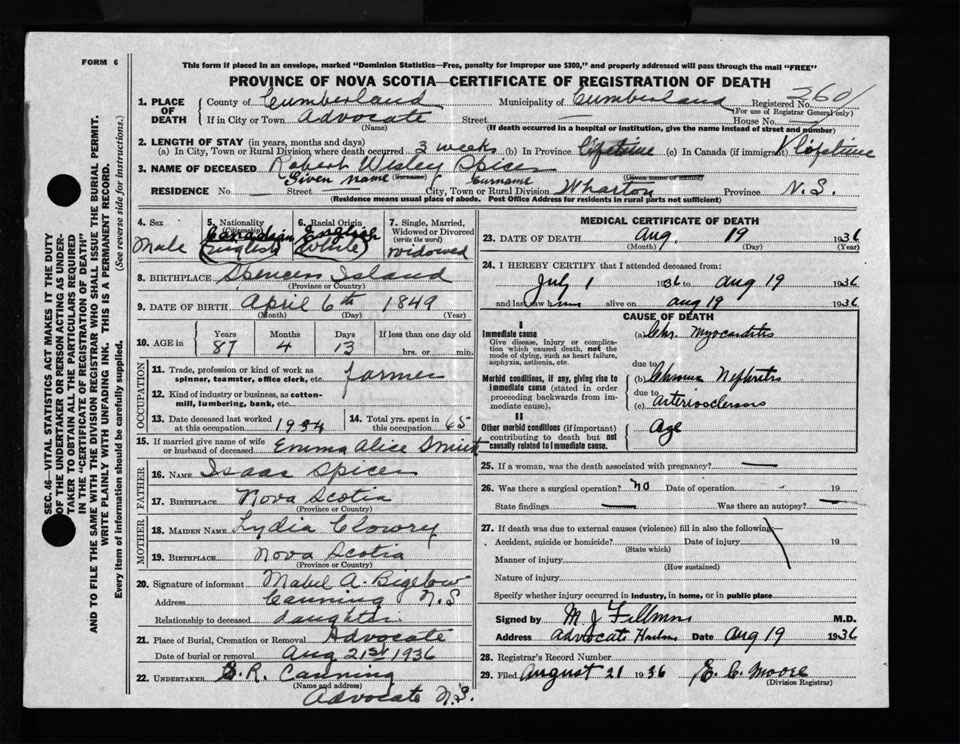 FORM 6
This form if placed in an envelope, marked "Dominion Statistics—Free, penalty for improper use $300," and properly addressed will pass through the mail "FREE"
PROVINCE OF NOVA SCOTIA—CERTIFICATE OF REGISTRATION OF DEATH
SEC. 46—VITAL STATISTICS ACT MAKES IT THE DUTY
OF THE UNDERTAKER OR PERSON ACTING AS UNDER-
TAKER TO OBTAIN ALL THE PARTICULARS REQUIRED
IN THE "CERTIFICATE OF REGISTRATION OF DEATH"
AND TO FILE THE SAME WITH THE DIVISION REGISTRAR WHO SHALL ISSUE THE BURIAL PERMIT.
WRITE PLAINLY WITH UNFADING INK. THIS IS A PERMANENT RECORD.
Every item of information should be carefully supplied. (See reverse side for instructions.)
1. PLACE OF DEATH County of Cumberland Municipality of Cumberland Registered No. 2601
(For use of Registrar General only)
If in City or Town Advocate Street — House No. —
(Name) (If death occurred in a hospital or institution, give the name instead of street and number)
2. LENGTH OF STAY (in years, months and days)
(a) In City, Town or Rural Division, where death occurred 3 weeks (b) In Province lifetime (c) In Canada (if immigrant) lifetime
3. NAME OF DECEASED Robert Wesley Spicer
Given name (Surname) Surname (Given name or names)
RESIDENCE No. — Street — City, Town or Rural Division Wharton Province N.S.
(Residence means usual place of abode. Post Office Address for residents in rural parts not sufficient)
4. Sex 5. Nationality (Citizenship) 6. Racial Origin 7. Single, Married, Widowed or Divorced (write the word)
Canadian English
Male (English) (White) widowed
8. BIRTHPLACE Spencers Island
(Province or Country)
9. DATE OF BIRTH April 6th 1849
(Month) (Day) (Year)
10. AGE in Years Months Days If less than one day old
87 4 13 hrs. or min.
OCCUPATION
11. Trade, profession or kind of work as spinner, teamster, office clerk, etc. farmer
12. Kind of industry or business, as cotton-mill, lumbering, bank, etc.
13. Date deceased last worked at this occupation 1934 14. Total yrs. spent in this occupation 65
15. If married give name of wife or husband of deceased Emma Alice
FATHER
16. NAME Isaac Spicer
17. BIRTHPLACE Nova Scotia
(Province or Country)
MOTHER
18. MAIDEN NAME Lydia Clowry
19. BIRTHPLACE Nova Scotia
(Province or Country)
20. Signature of informant Mabel A. Bigelow
Address Canning N.S
Relationship to deceased daughter
21. Place of Burial, Cremation or Removal Advocate
Date of burial or removal Aug 21st 1936
22. UNDERTAKER R. Canning
(Name and address)
Advocate N.S.
MEDICAL CERTIFICATE OF DEATH
23. DATE OF DEATH Aug. 19 1936
(Month) (Day) (Year)
24. I HEREBY CERTIFY that I attended deceased from:
July 1 1936 to Aug 19 1936
and last saw him alive on aug 19 1936
CAUSE OF DEATH
I
Immediate cause (a) Chr. Myocarditis
Give disease, injury or complication which caused death, not the mode of dying, such as heart failure, asphyxia, asthenia, etc.
due to
Morbid conditions, if any, giving rise to immediate cause (stated in order proceeding backwards from immediate cause). (b) Chronic Nephritis
due to
(c) arteriosclerosis
II
Other morbid conditions (if important) contributing to death but not causally related to immediate cause. Age
25. If a woman, was the death associated with pregnancy? —
26. Was there a surgical operation? no Date of operation 19
State findings — Was there an autopsy? —
27. If death was due to external causes (violence) fill in also the following:
Accident, suicide or homicide? Date of injury 19
(State which)
Manner of injury
(How sustained)
Nature of injury
Specify whether injury occurred in industry, in home, or in public place
Signed by M J Fillmore M.D.
Address advocate Harbor Date Aug 19 1936
28. Registrar's Record Number
29. Filed August 21 1936 E. C. Moore
(Division Registrar)